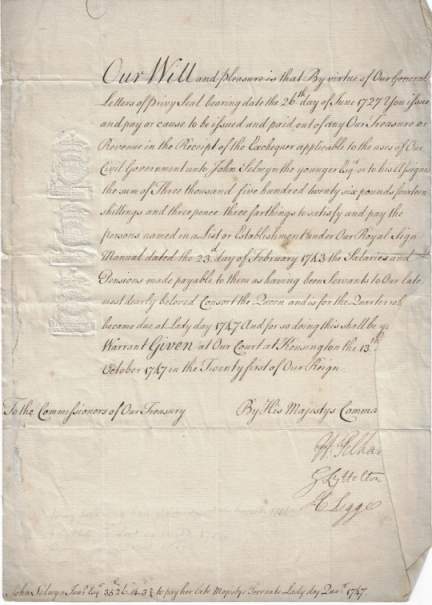 Our Will and pleasure is that By virtue of Our General
Letters of Privy Seal bearing date the 26th day of June 1727 You issue
and pay or cause to be issued and paid out of any Our Treasure or
Revenue in the Receipt of the Exchequer applicable to the uses of Our
Civil Government unto John Selwyn the younger Esqr. or to his Assigns
the sum of Three thousand five hundred twenty six pounds fourteen
shillings and three pence three farthings to satisfy and pay the
persons named in a List or Establishment under Our Royal Sign
Manual dated the 23d day of February 1743 the Salaries and
Pensions made payable to them as having been Servants to Our late
most dearly beloved Consort the Queen and is for the Quarter wch
became due at Lady day 1747 And for so doing this shall be yr
Warrant Given at Our Court at Kensington the 13th
October 1747 in the Twenty first of Our Reign
To the Commissioners of Our Treasury By His Majestys Comma
H Pelham
G Lyttelton
H Legge
John Selwyn Junr. Esqr. 3526. 14. 3¾ to pay her late Majestys Servants Lady day Quar. 1747.